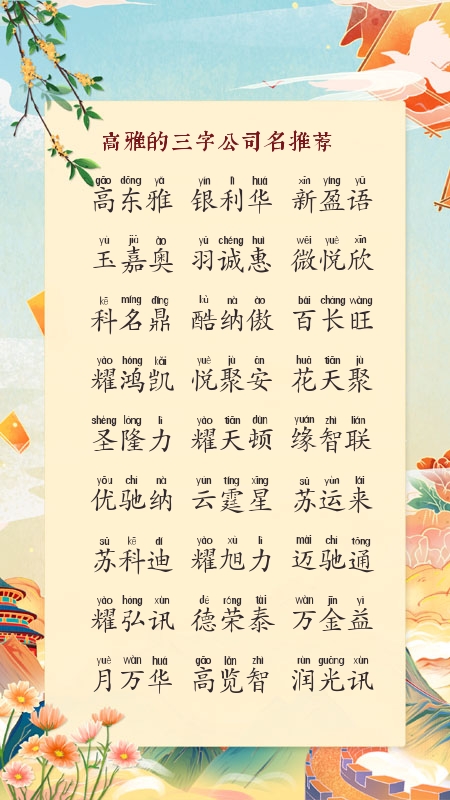 高雅的三字公司名推荐
gāo dōng yǎ yín lì huá xīn yíng yǔ
高东雅 银利华 新盈语
yù jiā ào yǔ chéng huì wēi yuè xīn
玉嘉奥 羽诚惠 微悦欣
kē míng dǐng kù nà ào bǎi cháng wàng
科名鼎 酷纳傲 百长旺
yào hóng kǎi yuè jù ān huā tiān jù
耀鸿凯 悦聚安 花天聚
shèng lóng lì yào tiān dùn yuán zhì lián
圣隆力 耀天顿 缘智联
yōu chí nà yún tíng xīng sū yùn lái
优驰纳 云霆星 苏运来
sū kē dí yào xù lì mài chí tōng
苏科迪 耀旭力 迈驰通
yào hóng xùn dé róng tài wàn jīn yì
耀弘讯 德荣泰 万金益
yuè wàn huá gāo lǎn zhì rùn guāng xùn
月万华 高览智 润光讯